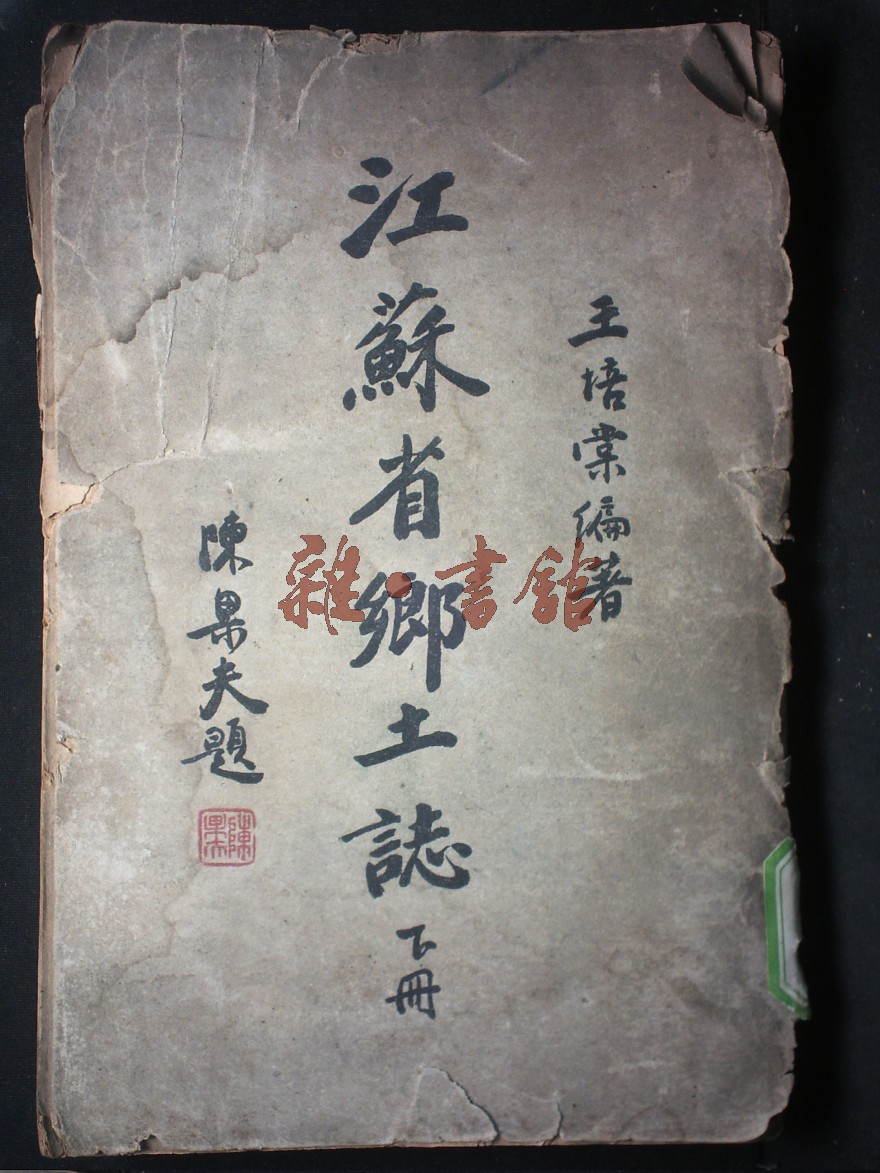 王培棠編著
江蘇省鄉土誌 下冊
陳果夫題
陳果
雜·書館